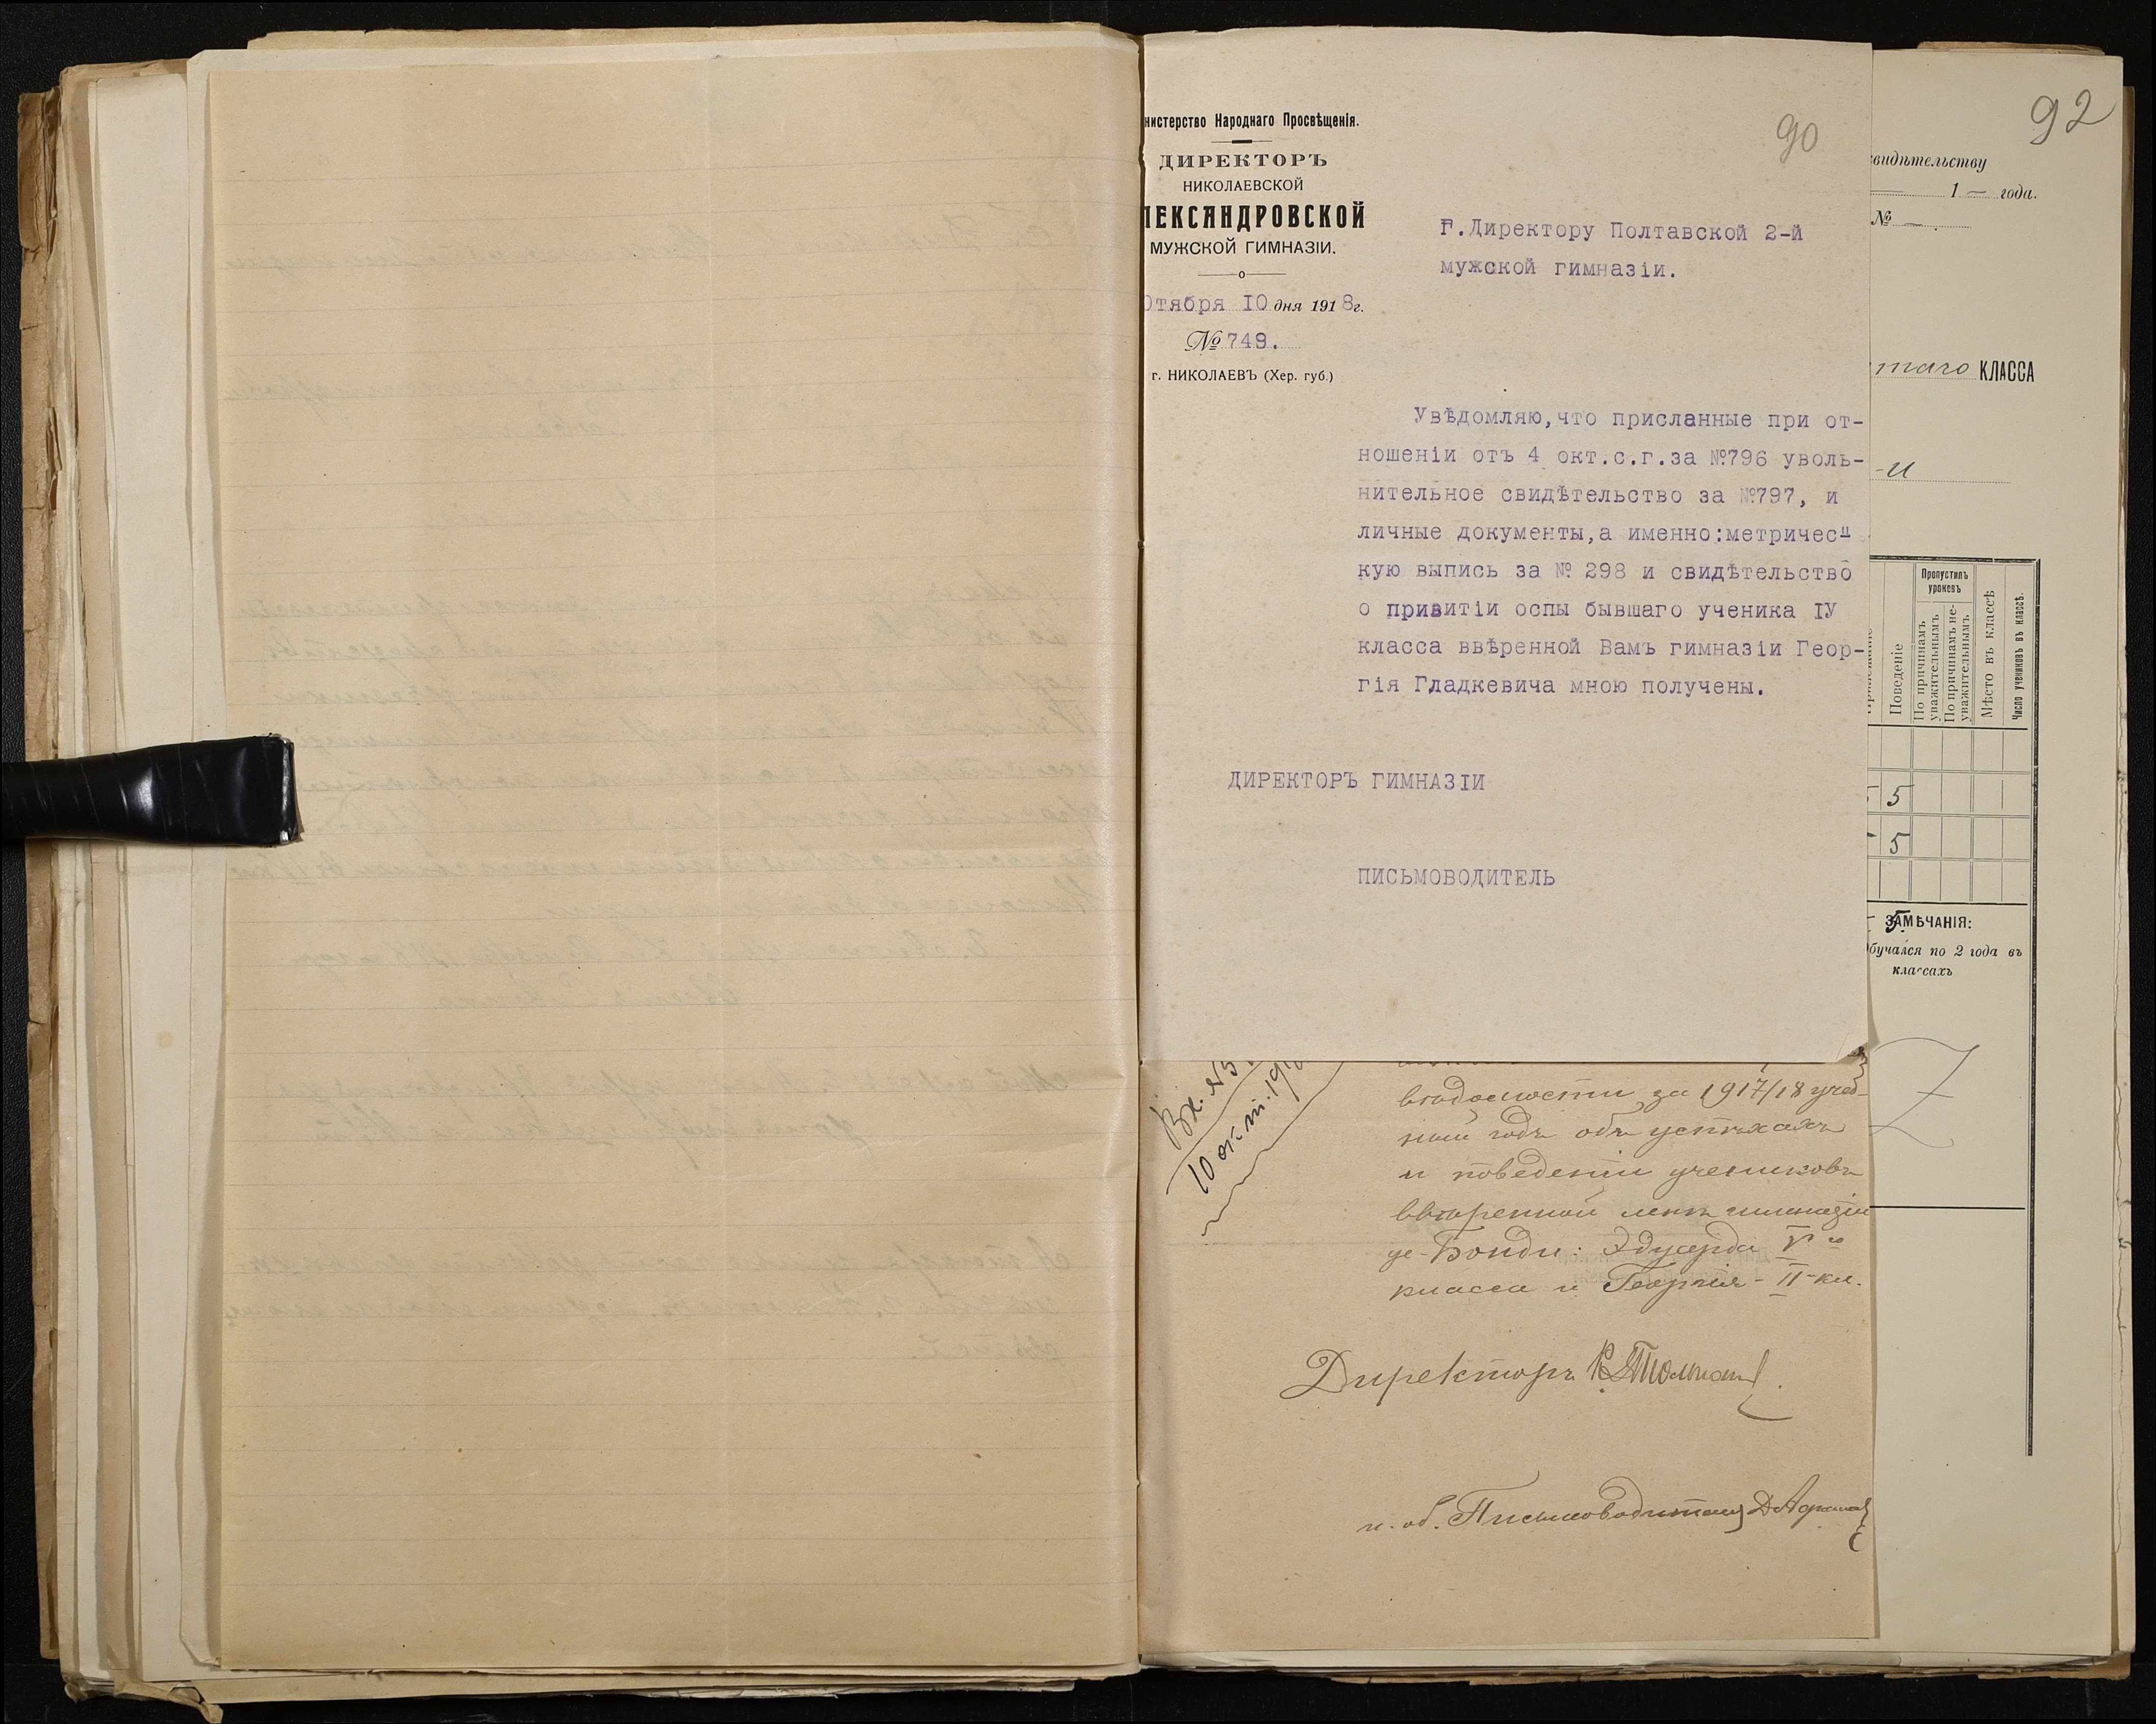 нистерство Народнаго Просвѣщенія.
ДИРЕКТОРЪ
НИКОЛАЕВСКОЙ
ЛЕКСАНДРОВСКОЙ
МУЖСКОЙ ГИМНАЗІИ.
Отября 10 дня 1918г.
№ 749.
г. НИКОЛАЕВЪ (Хер. губ.)
90
Г.Директору Полтавской 2-й
мужской гимназіи.
Увѣдомляю,что присланные при от-
ношеніи отъ 4 окт.с.г.за №796 уволь-
нительное свидѣтельство за №797, и
личные документы,а именно:метричес-
кую выпись за № 298 и свидѣтельство
о привитіи оспы бывшаго ученика IУ
класса ввѣренной Вамъ гимназіи Геор-
гія Гладкевича мною получены.
ДИРЕКТОРЪ ГИМНАЗІИ
ПИСЬМОВОДИТЕЛЬ
Вх. №5
10 окт. 191
вѣдомости за 1917/18 учеб-
ный годъ объ успѣхахъ
и поведеніи учениковъ
ввѣренной мнѣ гимназіи
де-Бонди: Эдуарда V го
класса и Георгія - II-кл.
Директоръ
и. об. Письмоводителя
92
видѣтельству
1 — года.
№ —
таго КЛАССА
-и
Поведеніе
Пропустилъ
уроковъ
По причинамъ
уважительнымъ
По причинамъ не-
уважительнымъ
Мѣсто въ классѣ
Число учениковъ въ классѣ.
5
5
5
ЗАМѢЧАНІЯ:
бучался по 2 года въ
классахъ